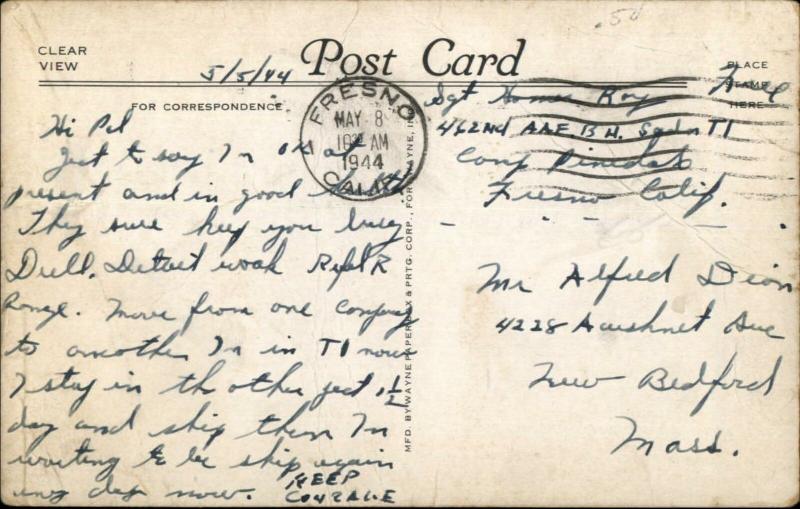 .50
CLEAR
VIEW
Post Card
PLACE
STAMP
HERE
5/5/44
FOR CORRESPONDENCE
FRESNO
MAY 8
10 30 AM
1944
CALIF.
Free
Sgt Homer Roy
462nd AAF B H. Sqdn T1
Camp Pinedale
Fresno Calif.
Hi Pal
Just to say I'm OK at
present and in good health
They sure keep you busy
Drill. Detail work Rifle R
Range. Move from one Company
to another I'm in T1 now
I stay in the other just 1 1/2
day and ship then I'm
waiting to be ship again
any day now. KEEP
COURAGE
MFD. BY WAYNE PAPER BOX & PRTG. CORP., FORT WAYNE, IND.
Mr Alfred Dion
4228 Acushnet Ave
New Bedford
Mass.